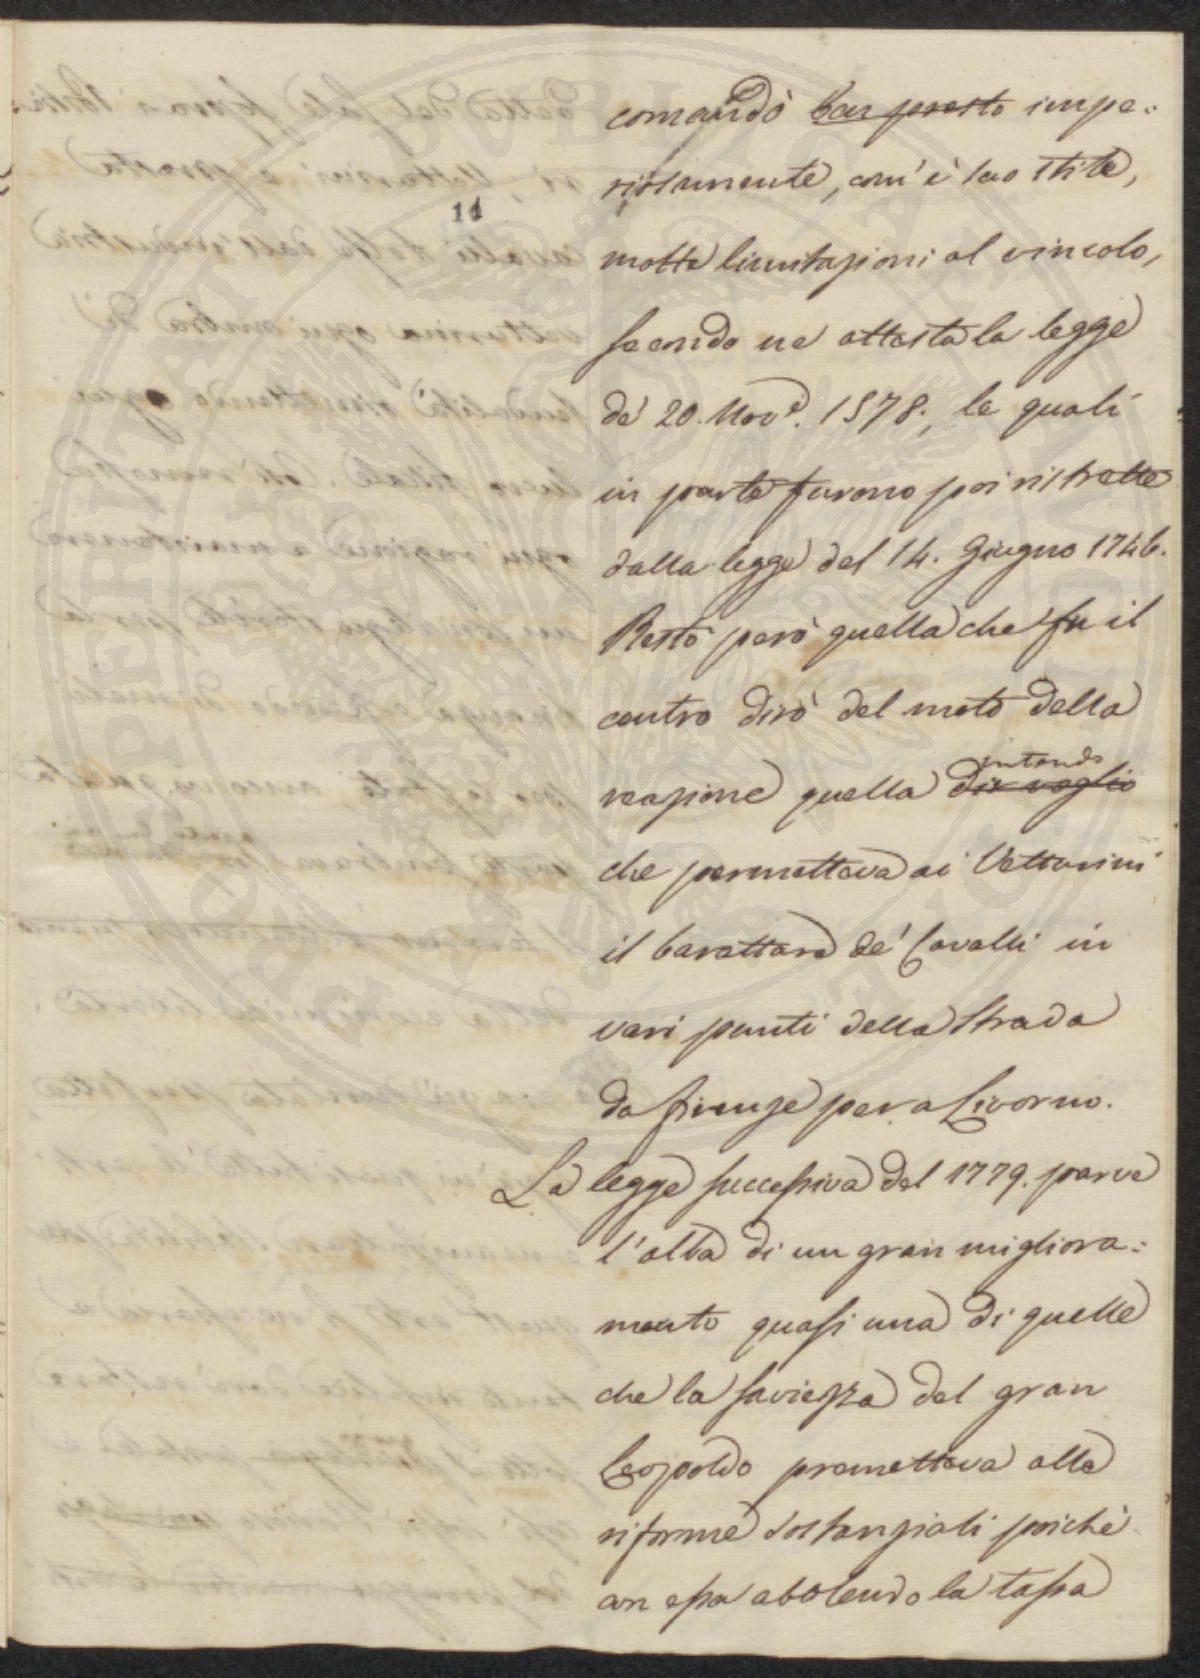 comandò ben presto impe:
riosamente, com'è suo stile,
11
molte limitazioni al vincolo,
secondo ne attesta la legge
de' 20. Nov.e 1578., le quali
in parte furono poi ristrette
dalla legge del 14. Giugno 1746.
Restò però quella che fu il
centro dirò del moto della
reazione quella dir voglio
intendo
che permetteva ai Vetturini
il barattare de' Cavalli in
vari punti della Strada
da Firenze per a Livorno.
La legge successiva del 1779. parve
l'alba di un gran migliora:
mento quasi una di quelle
che la saviezza del gran
Leopoldo premetteva alle
riforme sostanziali poichè
con essa abolendo la tassa
PROSPERITATI PUBLICAE AUGENDAE